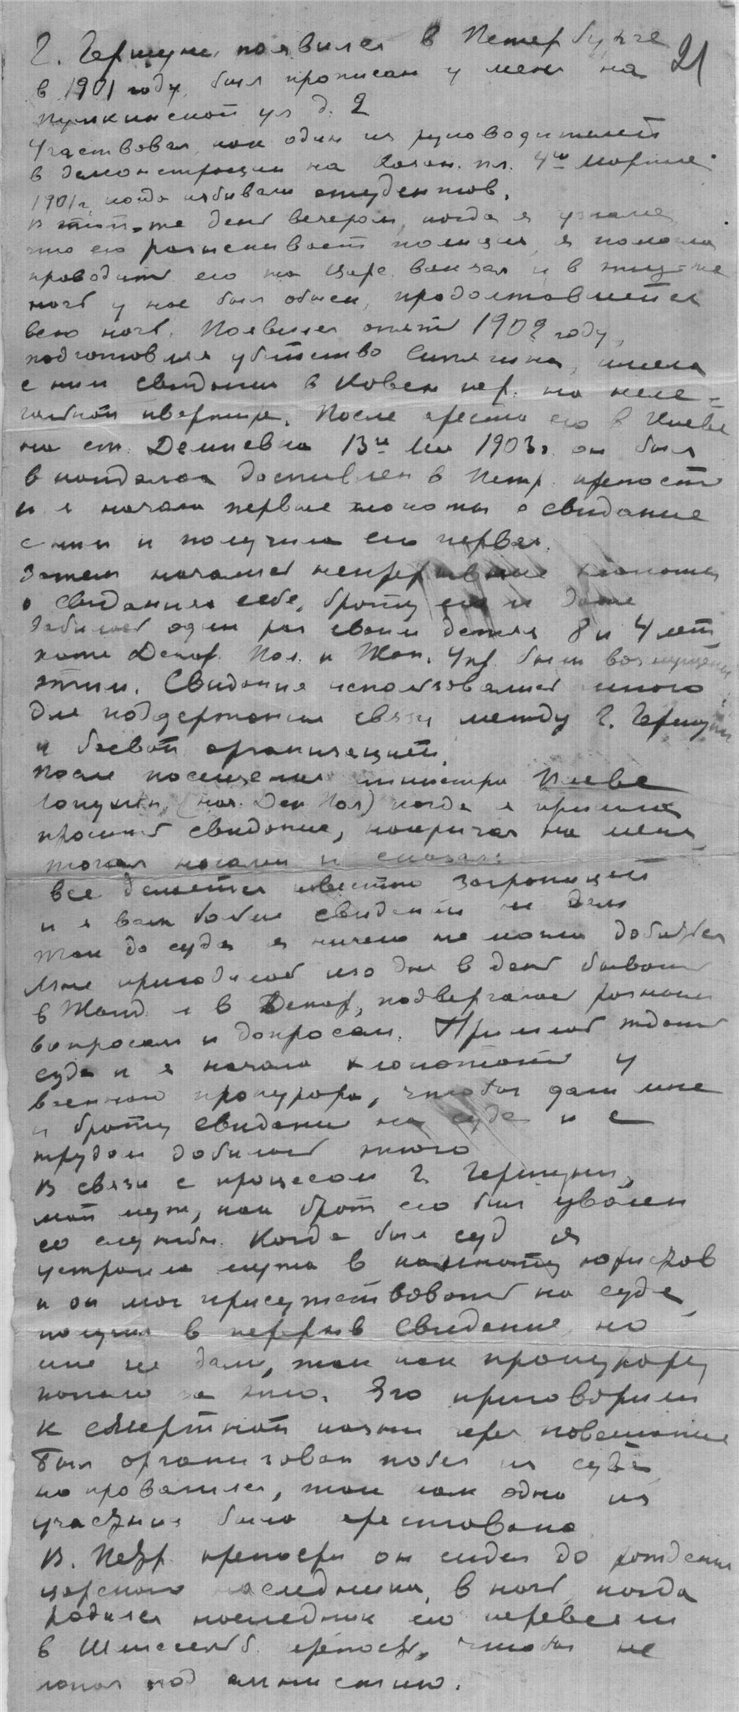 Г. Гершуни появился в Петербурге 21
в 1901 году, был прописан у меня на
Пушкинской ул д. 2
Участвовал как один из руководителей
в демонстрации на Казан. пл. 4го марта
1901 г, когда избивали студентов.
В тот-же день вечером, когда я узнала
что его разыскивает полиция, я поехала
проводить его на Царс. вокзал и в ту-же
ночь у нас был обыск, продолжавшийся
всю ночь. Появился опять 1902 году,
подготовляя убийство Сипягина, имела
с ним свидания в Ковен. пер. на неле-
гальной квартире. После ареста его в Киеве
на ст. Демиевка 13го Мая 1903 г. он был
в кандалах доставлен в Петр. крепость
и я начала первые хлопоты о свидание
с ним и получила его первая.
Затем начались непрерывные хлопоты
о свидании себе, брату его и даже
добилась один раз своим детям 8 и 4 лет
хотя Депар. Пол. и Жан. Упр. были возмущены
этим. Свидания использовались много
для поддержания связи между Г. Гершуни
и боевой организацией.
После посещения министра Плеве
Лопухин, (нач. Деп Пол) когда я пришла
просить свидание, накричал на меня,
топал ногами и сказал:
все делается известно заграницей
и я вам больше свиданий не дам
Так до суда я ничего не могла добиться
Мне приходилось изо дня в день бывать
в Жанд. и в Депар, подвергаться разным
вопросам и допросам. Пришлось ждать
суда и я начала хлопотать у
военного прокурора, чтобы дали мне
и брату свидание на суде и с
трудом добилась этого
В связи с процесом Г. Гершуни,
мой муж, как брат его был уволен
со службы. Когда был суд я
устроила мужа в комнату юристов
и он мог присутствовать на суде,
получил в перерыв свидание, но
мне не дали, так как прокурору
попало за это. Его приговорили
к смертной казни чрез повешение
Был организован побег из суда
но провалился, так как одно из
участниц было арестовано
В. Петр. крепости он сидел до рождения
царского наследника, в ночь, когда
родился наследник его перевезли
в Шлиссельб. крепость, чтобы не
попал под амнистию.